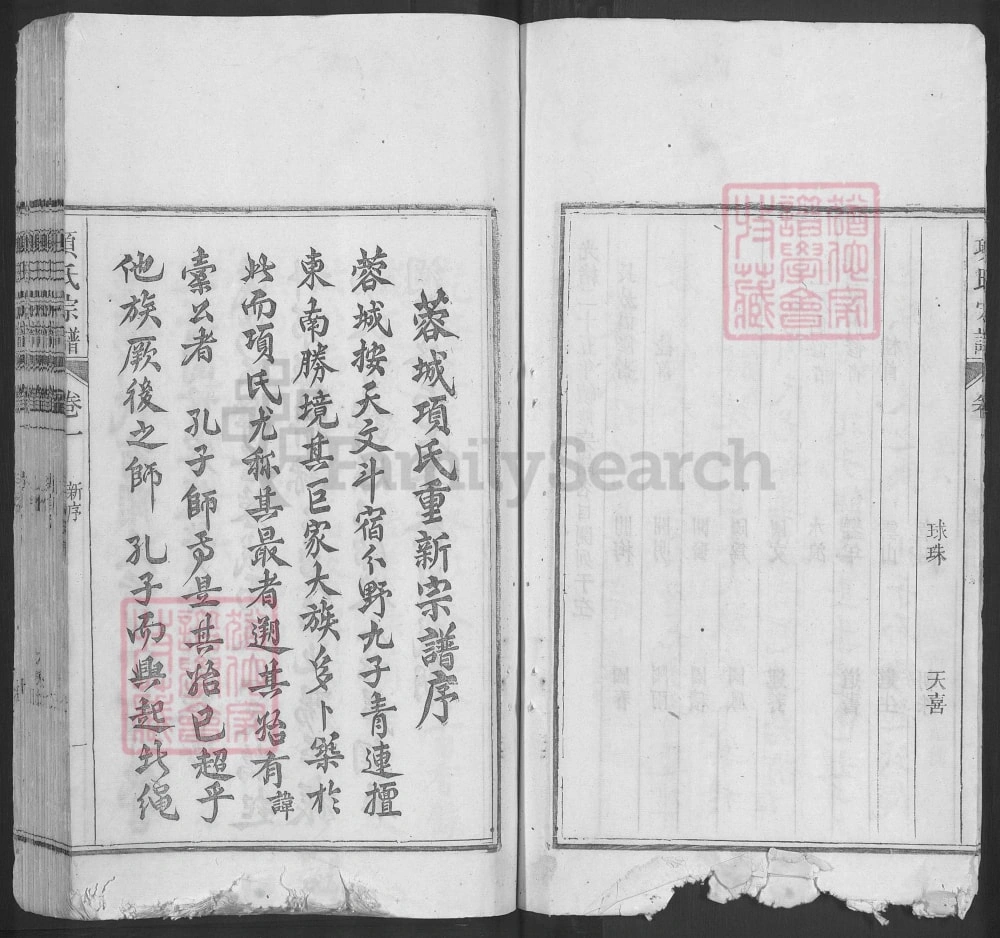 球珠
天喜
蓉城項氏重新宗譜序
蓉城按天文斗宿分野九子青連擅
東南勝境其巨家大族多卜築於
此而項氏尤称其最者遡其始有諱
橐公者 孔子師焉是其始已超乎
他族厥後之師 孔子而興起此绳
項氏宗譜
卷一
新序
一
猶他家譜學會特藏
猶他家譜學會特藏
FamilySearch